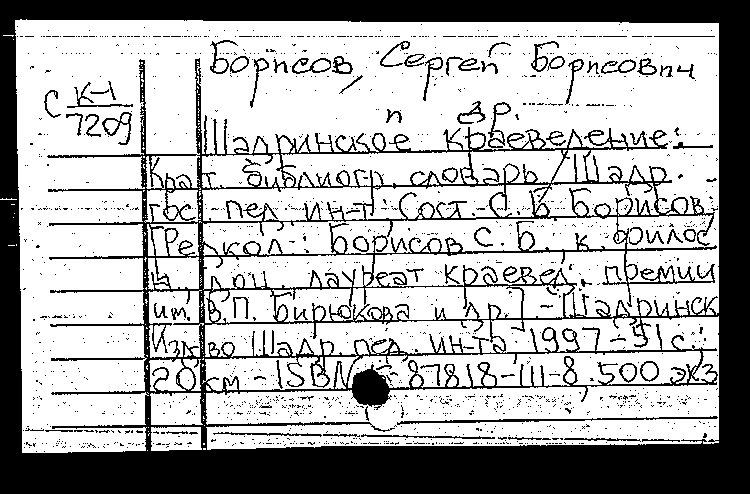 Борисов, Сергей Борисович
и др.
С К-1
7209
Шадринское краеведение:
Крат. библиогр. словарь / Шадр.
гос. пед. ин-т; Сост. С. Б. Борисов;
[Редкол.: Борисов С. Б., к. филос.
н., доц., лауреат краевед. премии
им. В.П. Бирюкова и др.] - Шадринск
Изд-во Шадр. пед. ин-та, 1997 - 51 с.;
20 см - ISBN 87818-111-8, 500 экз